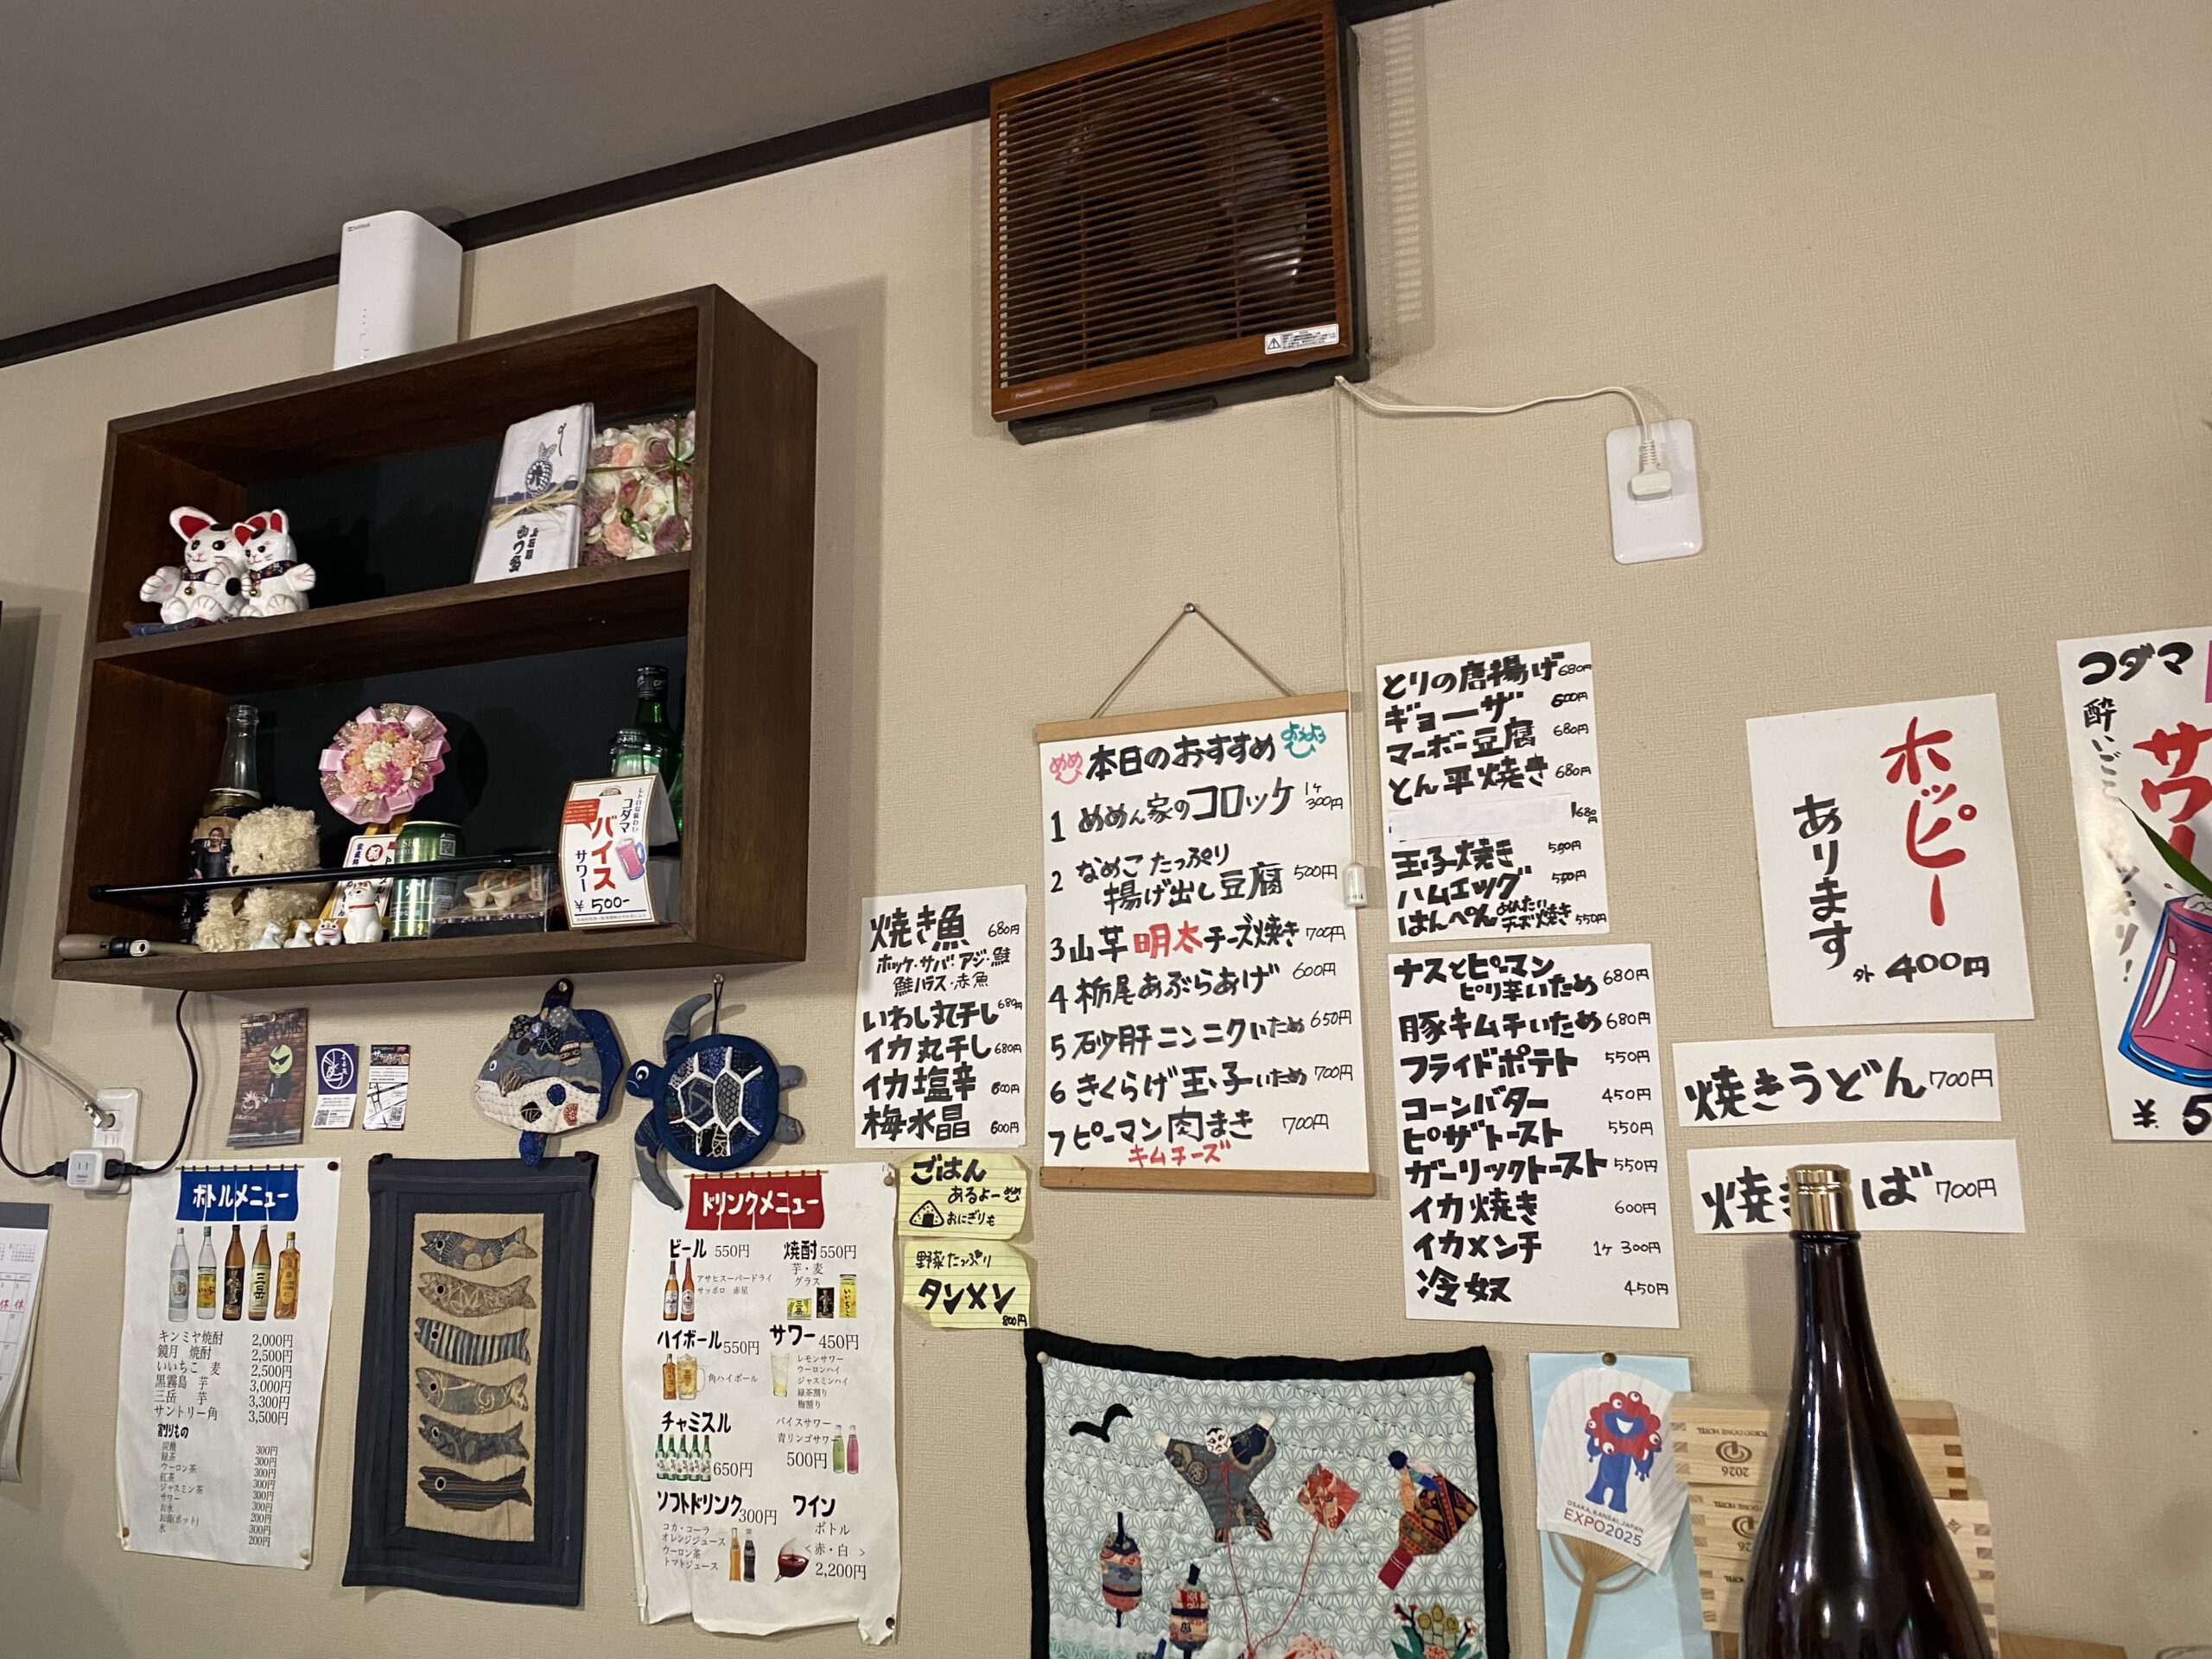 SoftBank
Panasonic
レトロな味わい
コダマ
バイス
サワー
¥500-
焼き魚 680円
ホッケ・サバ・アジ・鮭
鮭ハラス・赤魚
いわし丸干し 680円
イカ丸干し 680円
イカ塩辛 600円
梅水晶 600円
ごはん
あるよー
おにぎりも
野菜たっぷり
タンメン
800円
めめ 本日のおすすめ
1 めめん家のコロッケ 1ヶ 300円
2 なめこたっぷり
揚げ出し豆腐 500円
3 山芋明太チーズ焼き 700円
4 栃尾あぶらあげ 600円
5 砂肝ニンニクいため 650円
6 きくらげ玉子いため 700円
7 ピーマン肉まき 700円
キムチーズ
とりの唐揚げ 680円
ギョーザ 600円
マーボー豆腐 680円
とん平焼き 680円
680円
玉子焼き 550円
ハムエッグ 550円
はんぺんめんたいチーズ焼き 550円
ナスとピーマン
ピリ辛いため 680円
豚キムチいため 680円
フライドポテト 550円
コーンバター 450円
ピザトースト 550円
ガーリックトースト 550円
イカ焼き 600円
イカメンチ 1ヶ 300円
冷奴 450円
ホッピー
あります
外 400円
焼きうどん 700円
焼き ば 700円
コダマ
サワー
¥5
ボトルメニュー
キンミヤ焼酎 2,000円
鏡月 焼酎 2,500円
いいちこ 麦 2,500円
黒霧島 芋 3,000円
三岳 芋 3,300円
サントリー角 3,500円
割りもの
炭酸 300円
緑茶 300円
ウーロン茶 300円
紅茶 300円
ジャスミン茶 300円
サワー 300円
お水 200円
お湯(ポット) 300円
氷 200円
ドリンクメニュー
ビール 550円
アサヒスーパードライ
サッポロ 赤星
焼酎 550円
芋・麦
グラス
ハイボール 550円
角ハイボール
サワー 450円
レモンサワー
ウーロンハイ
ジャスミンハイ
緑茶割り
梅割り
チャミスル
650円
バイスサワー
青リンゴサワー
500円
ソフトドリンク 300円
コカ・コーラ
オレンジジュース
ウーロン茶
トマトジュース
ワイン
ボトル
<赤・白>
2,200円
OSAKA, KANSAI, JAPAN
EXPO2025
TOKYO DOME HOTEL
2026